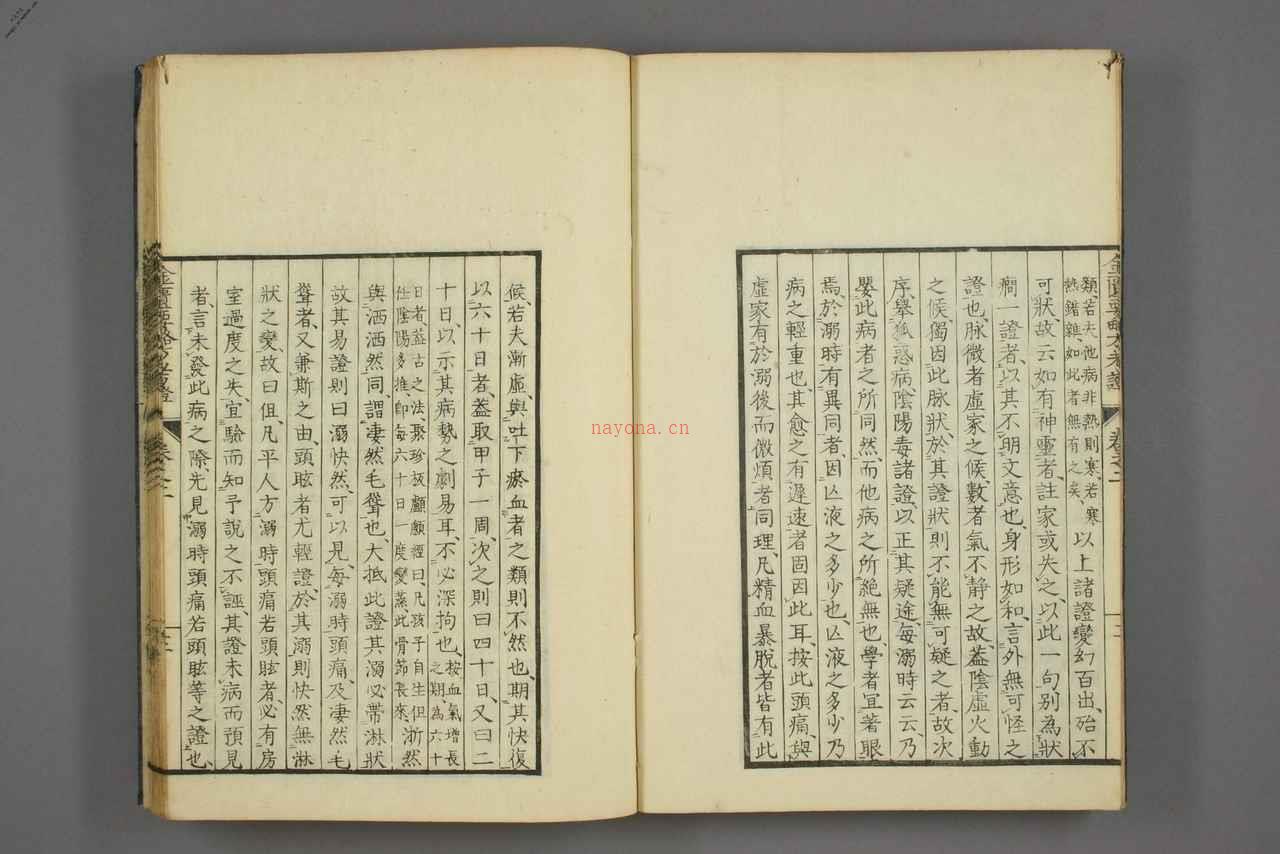 類若夫他病非熱則寒若寒
熱錯雜如此者無有之矣以上諸證變幻百出殆不
可狀故云如有神靈者註家或失之以此一句別為狀
癎一證者以其不明文意也身形如和言外無可怪之
證也脉微者虛家之候數者氣不靜之故蓋陰虛火動
之候獨因此脉狀於其證狀則不能無可疑之者故次
序舉狐惑病陰陽毒諸證以正其疑途每溺時云云乃
嬰此病者之所同然而他病之所絕無也學者宜著眼
焉於溺時有異同者因亾液之多少也亾液之多少乃
病之輕重也其愈之有遲速者固因此耳按此頭痛與
虛家有於溺後而微煩者同理凡精血暴脫者皆有此
候若夫漸虛與吐下瘀血者之類則不然也期其快復
以六十日者蓋取甲子一周次之則曰四十日又曰二
十日以示其病勢之劇易耳不必深拘也按血氣增長
之期為六十
日者蓋古之法聚珍板顱顖經曰凡孩子自生但
任陰陽推移即每六十日一度變蒸此骨節長來淅然
與洒洒然同謂凄然毛聳也大抵此證其溺必帶淋狀
故其易證則曰溺快然可以見每溺時頭痛及凄然毛
聳者又兼斯之由頭眩者尤輕證於其溺則快然無淋
狀之變故曰但凡平人方溺時頭痛若頭眩者必有房
室過度之失宜驗而知予說之不誣其證未病而預見
者言未發此病之際先見溺時頭痛若頭眩等之證也
卷之二
nayona.cn